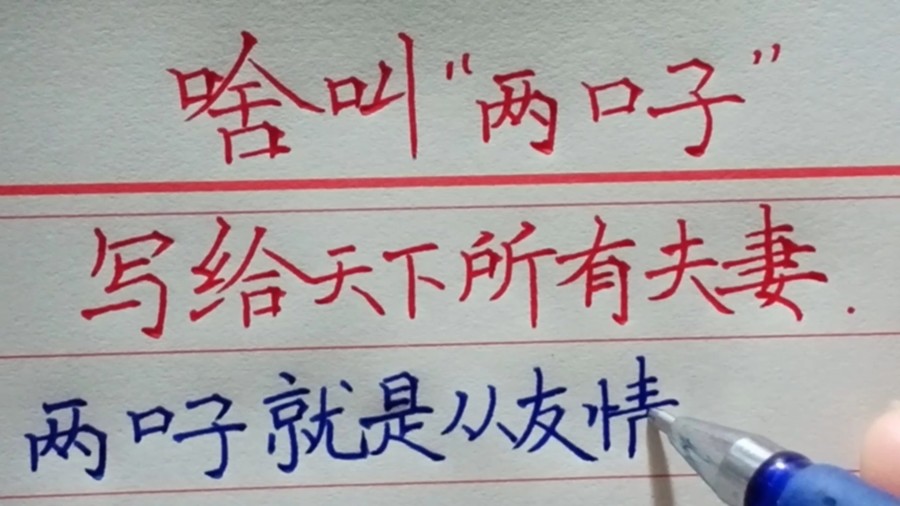 啥叫“两口子”
写给天下所有夫妻.
两口子就是从友情